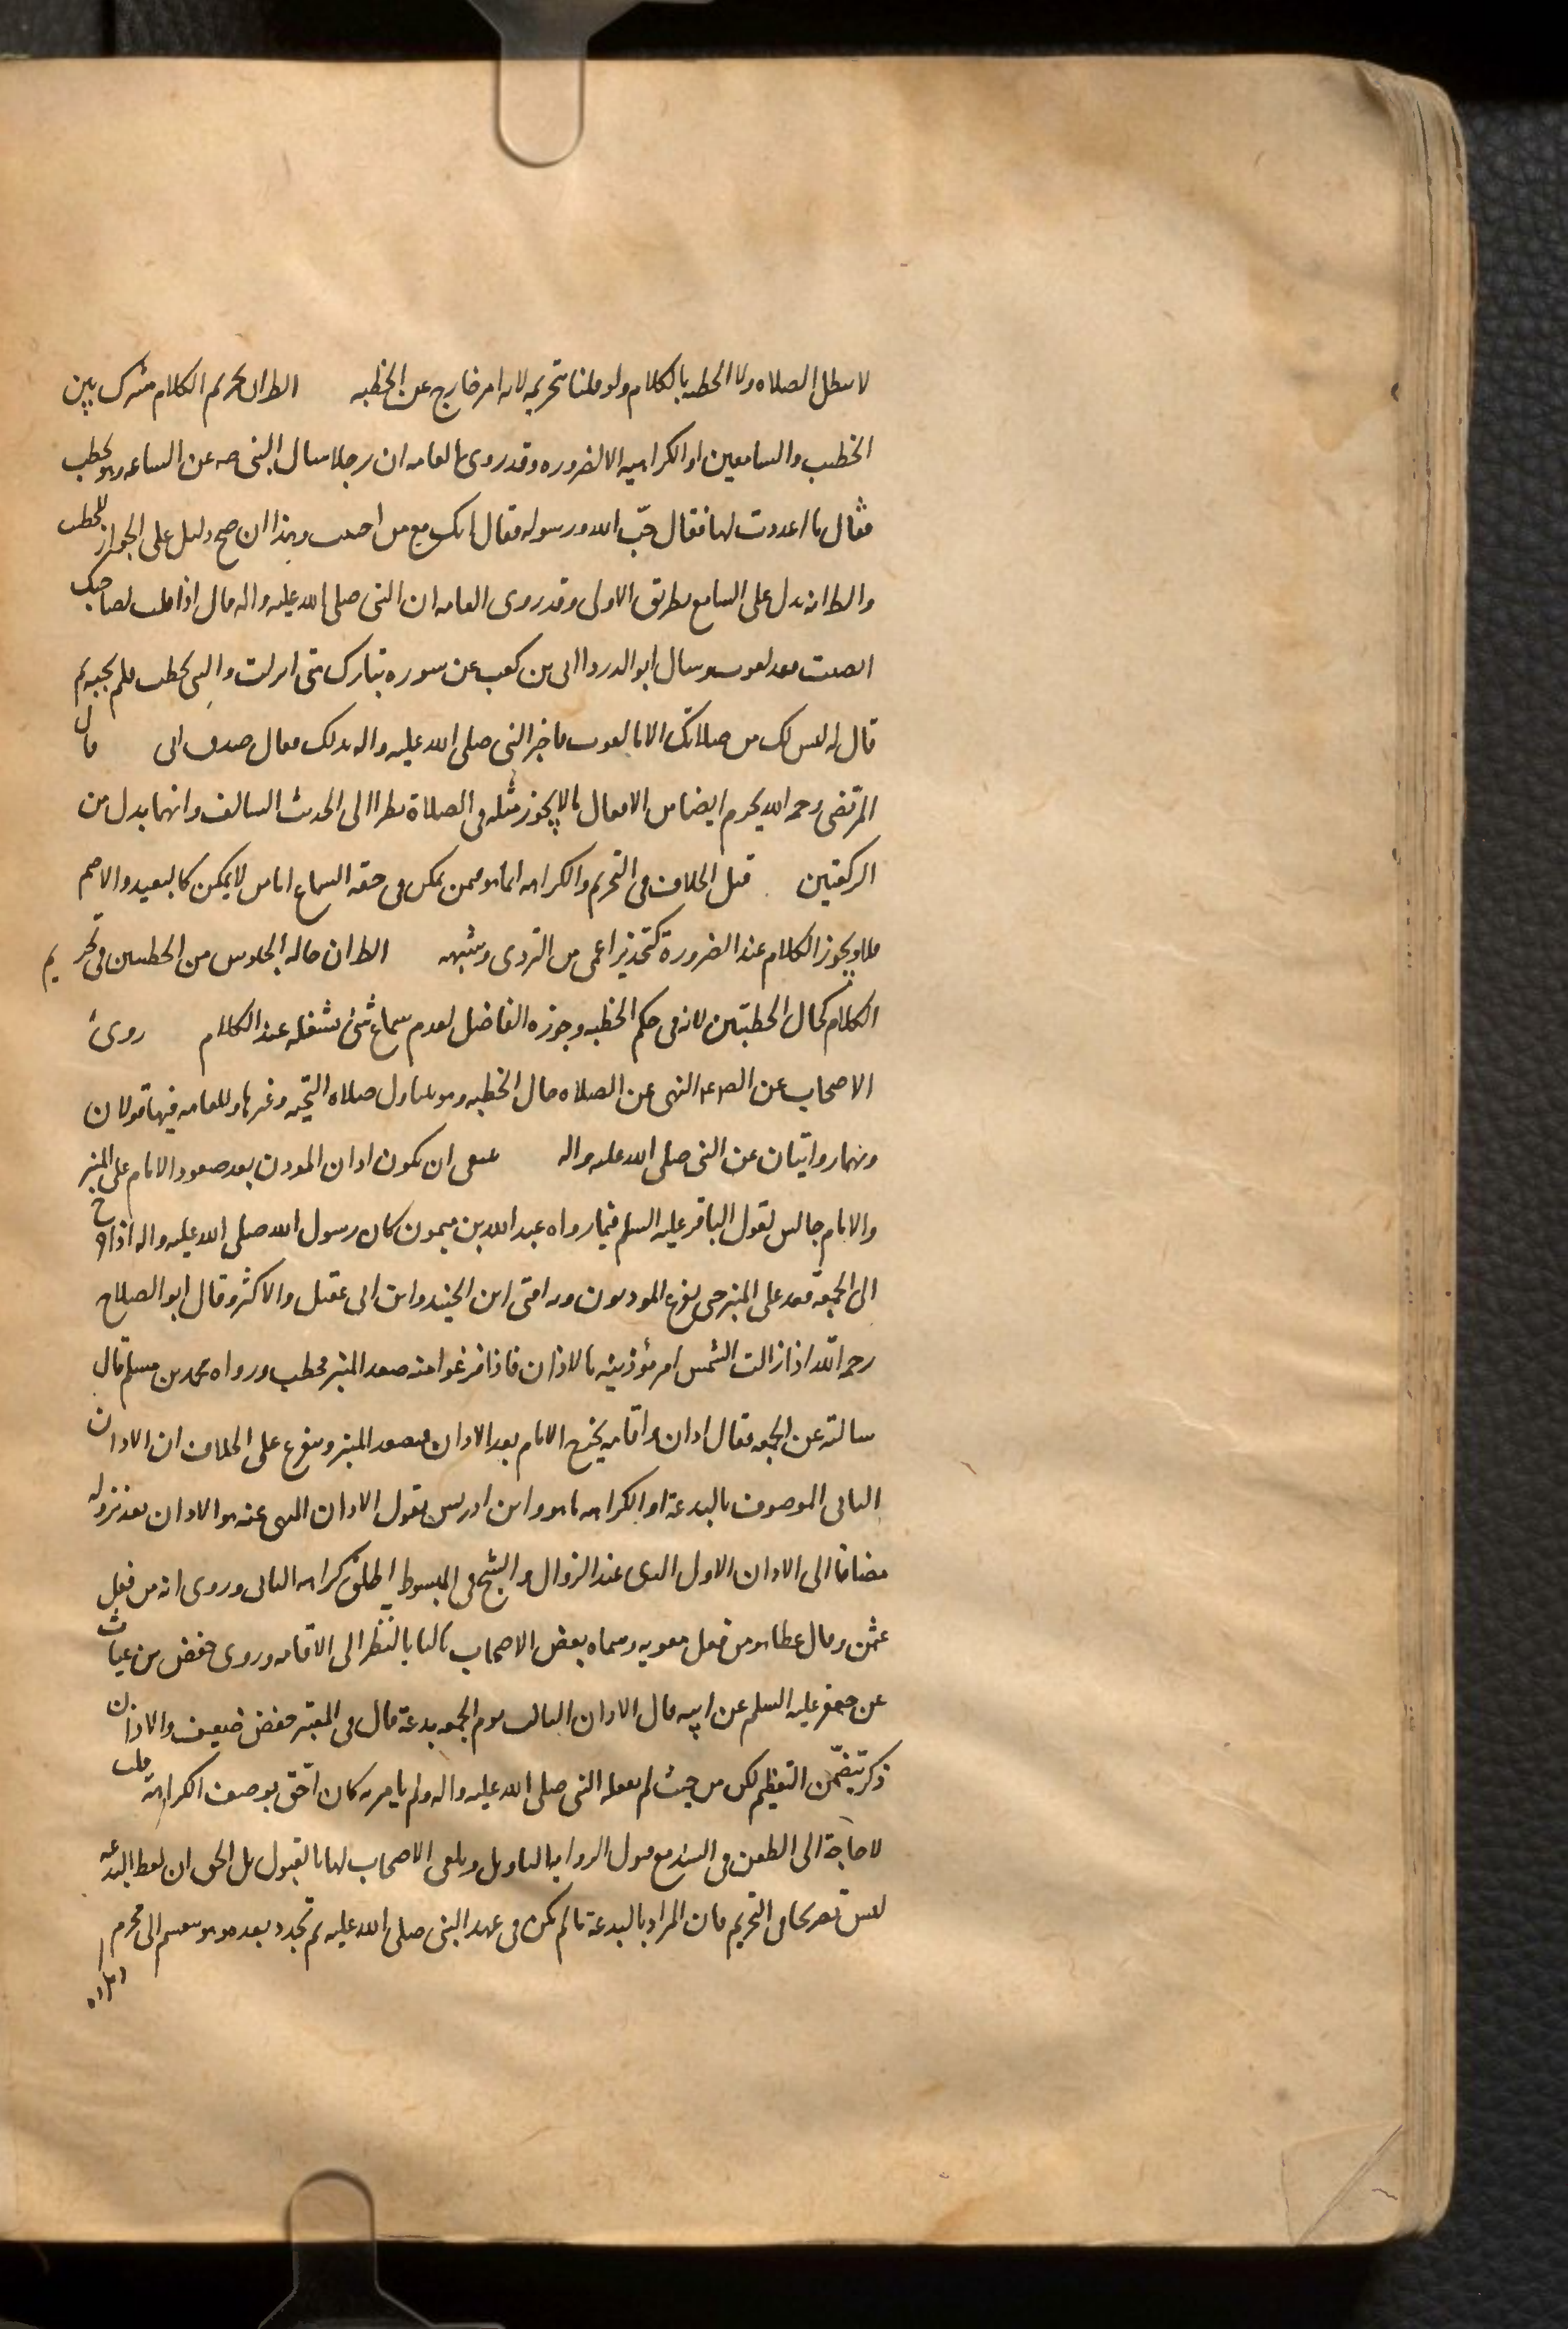 لا تبطل الصلاه ولا الخطبه بالكلام ولو قلنا بتحريمه لانه امر خارج عن الخطبه الظ ان تحريم الكلام مشترك بين
الخطيب والسامعين او الكراهيه الا لضروره وقد روى العامه ان رجلا سال النبى صه عن الساعه وهو يخطب
فقال ما اعددت لها فقال حبّ الله ورسوله فقال انك مع من احببت وهذا ان صح دليل على الجواز للخطيب
والظ انه يدل على السامع بطريق الاولى وقد روى العامه ان النبى صلى الله عليه واله قال اذا قلت لصاحبك
انصت فقد لغوت وسال ابو الدردا ابى بن كعب عن سوره تبارك متى انزلت والنبى يخطب فلم يجبه ثم
قال له ليس لك من صلاتك الا ما لغوت فاخبر النبى صلى الله عليه واله بذلك فقال صدق ابى قال
المرتضى رحمه الله يحرم ايضا من الافعال ما لا يجوز مثله فى الصلاة نظرا الى الحديث السالف وانهما بدل من
الركعتين قيل الخلاف فى التحريم والكراهه انما هو فيمن يمكن فى حقه السماع اما من لا يمكن كالبعيد والاصم
فلا ويجوز الكلام عند الضرورة كتحذير اعمى من التردى وشبهه الظ ان حاله الجلوس من الخطبتين فى تحريم
الكلام كحال الخطبتين لانه فى حكم الخطبه وجوزه الفاضل لعدم سماع شئ يشغله عند الكلام روى
الاصحاب عن الص ع م النهى عن الصلاه حال الخطبه وهو يتناول صلاه التحيه وغيرها وللعامه فيها قولان
وبهما روايتان عن النبى صلى الله عليه واله ينبغى ان يكون اذان الموذن بعد صعود الامام على المنبر
والامام جالس لقول الباقر عليه السلم فيما رواه عبد الله بن ميمون كان رسول الله صلى الله عليه واله اذا خرج
الى الجمعه قعد على المنبر حتى يفرغ الموذنون وبه افتى ابن الجنيد وابن ابى عقيل والاكثر وقال ابو الصلاح
رحمه اللّه اذا زالت الشمس امر مؤذنيه بالاذان فاذا فرغوا منه صعد المنبر فخطب ورواه محمد بن مسلم قال
سالته عن الجمعه فقال اذان واقامه يخرج الامام بعد الاذان فيصعد المنبر ويتفرع على الخلاف ان الاذان
الثانى الموصوف بالبدعة او الكراهه ما هو وابن ادريس يقول الاذان المنهى عنه هو الاذان بعد نزوله
مضافا الى الاذان الاول الذى عند الزوال والشيخ فى المبسوط اطلق كراهه الثانى وروى انه من فعل
عثمن وقال عطا هو من فعل معويه وسماه بعض الاصحاب ثالثا بالنظر الى الاقامه وروى حفص بن غياث
عن جعفر عليه السلم عن ابيه قال الاذان الثالث يوم الجمعه بدعة قال فى المعتبر حفص ضعيف والاذان
ذكر يتضمّن التعظيم لكن من حيث لم يفعله النبى صلى الله عليه واله ولم يامر به كان احّق بوصف الكراهية قلت
لا حاجة الى الطعن فى السند مع قبول الروايه التاويل وتلقى الاصحاب لها بالقبول بل الحق ان لفظ البدعه
ليس تصريحا فى التحريم فان المراد بالبدعة ما لم يكن فى عهد النبى صلى الله عليه ثم تجدد بعده وهو ينقسم الى محرم